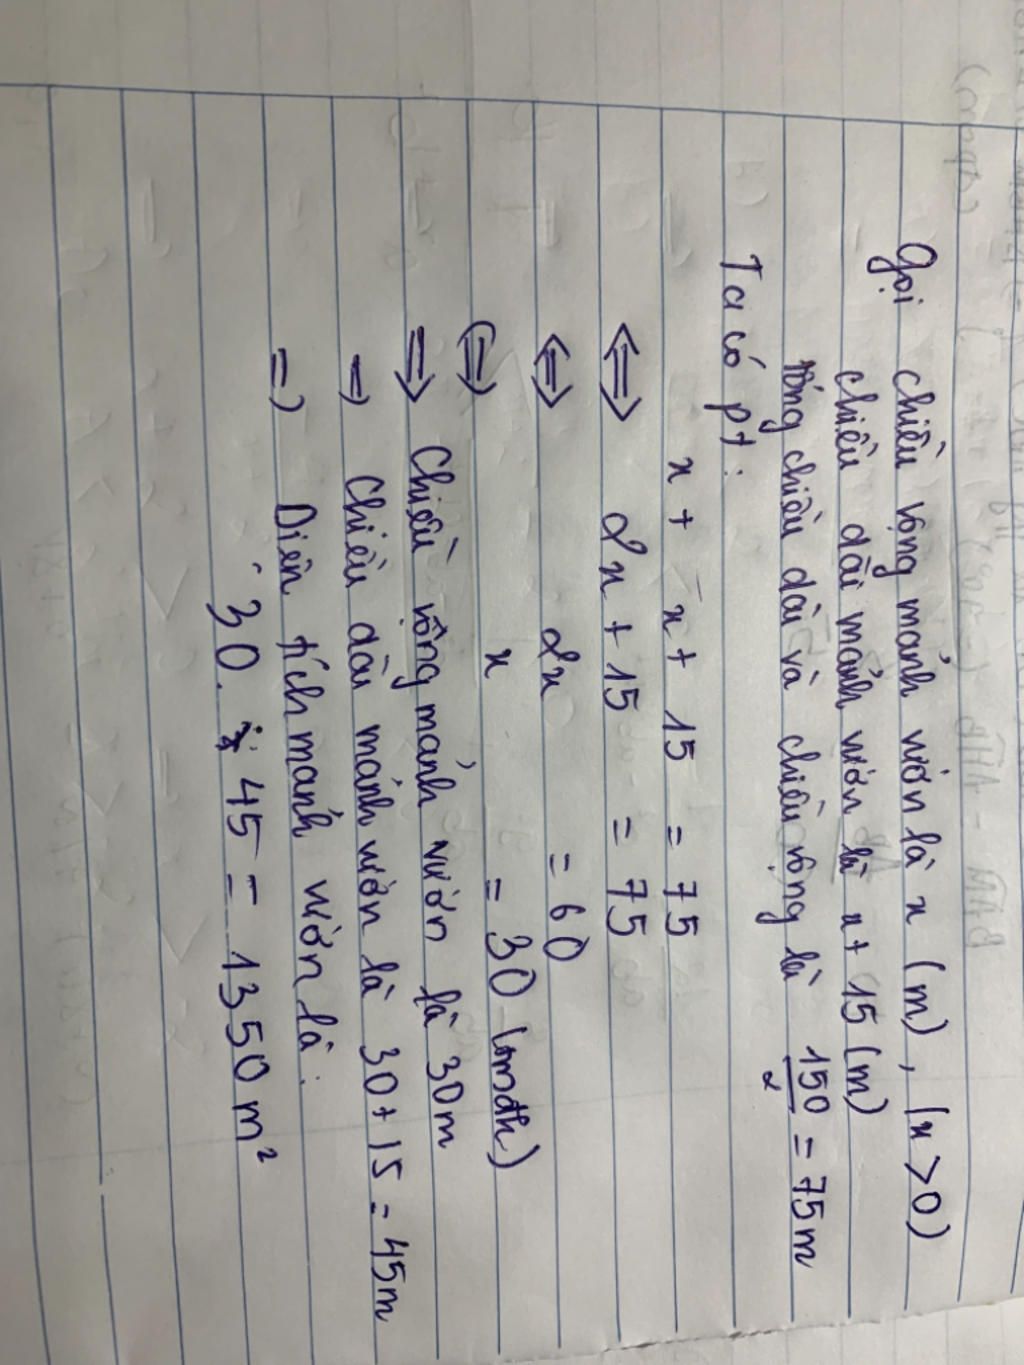 Gọi chiều rộng mảnh vườn là x (m), (x > 0)
chiều dài mảnh vườn là x + 15 (m)
tổng chiều dài và chiều rộng là 150/2 = 75m
Ta có pt:
x + x + 15 = 75
⇔ 2x + 15 = 75
⇔ 2x = 60
⇔ x = 30 (tmđk)
⇒ Chiều rộng mảnh vườn là 30m
⇒ Chiều dài mảnh vườn là 30 + 15 = 45m
⇒ Diện tích mảnh vườn là:
30. 45 = 1350 m²